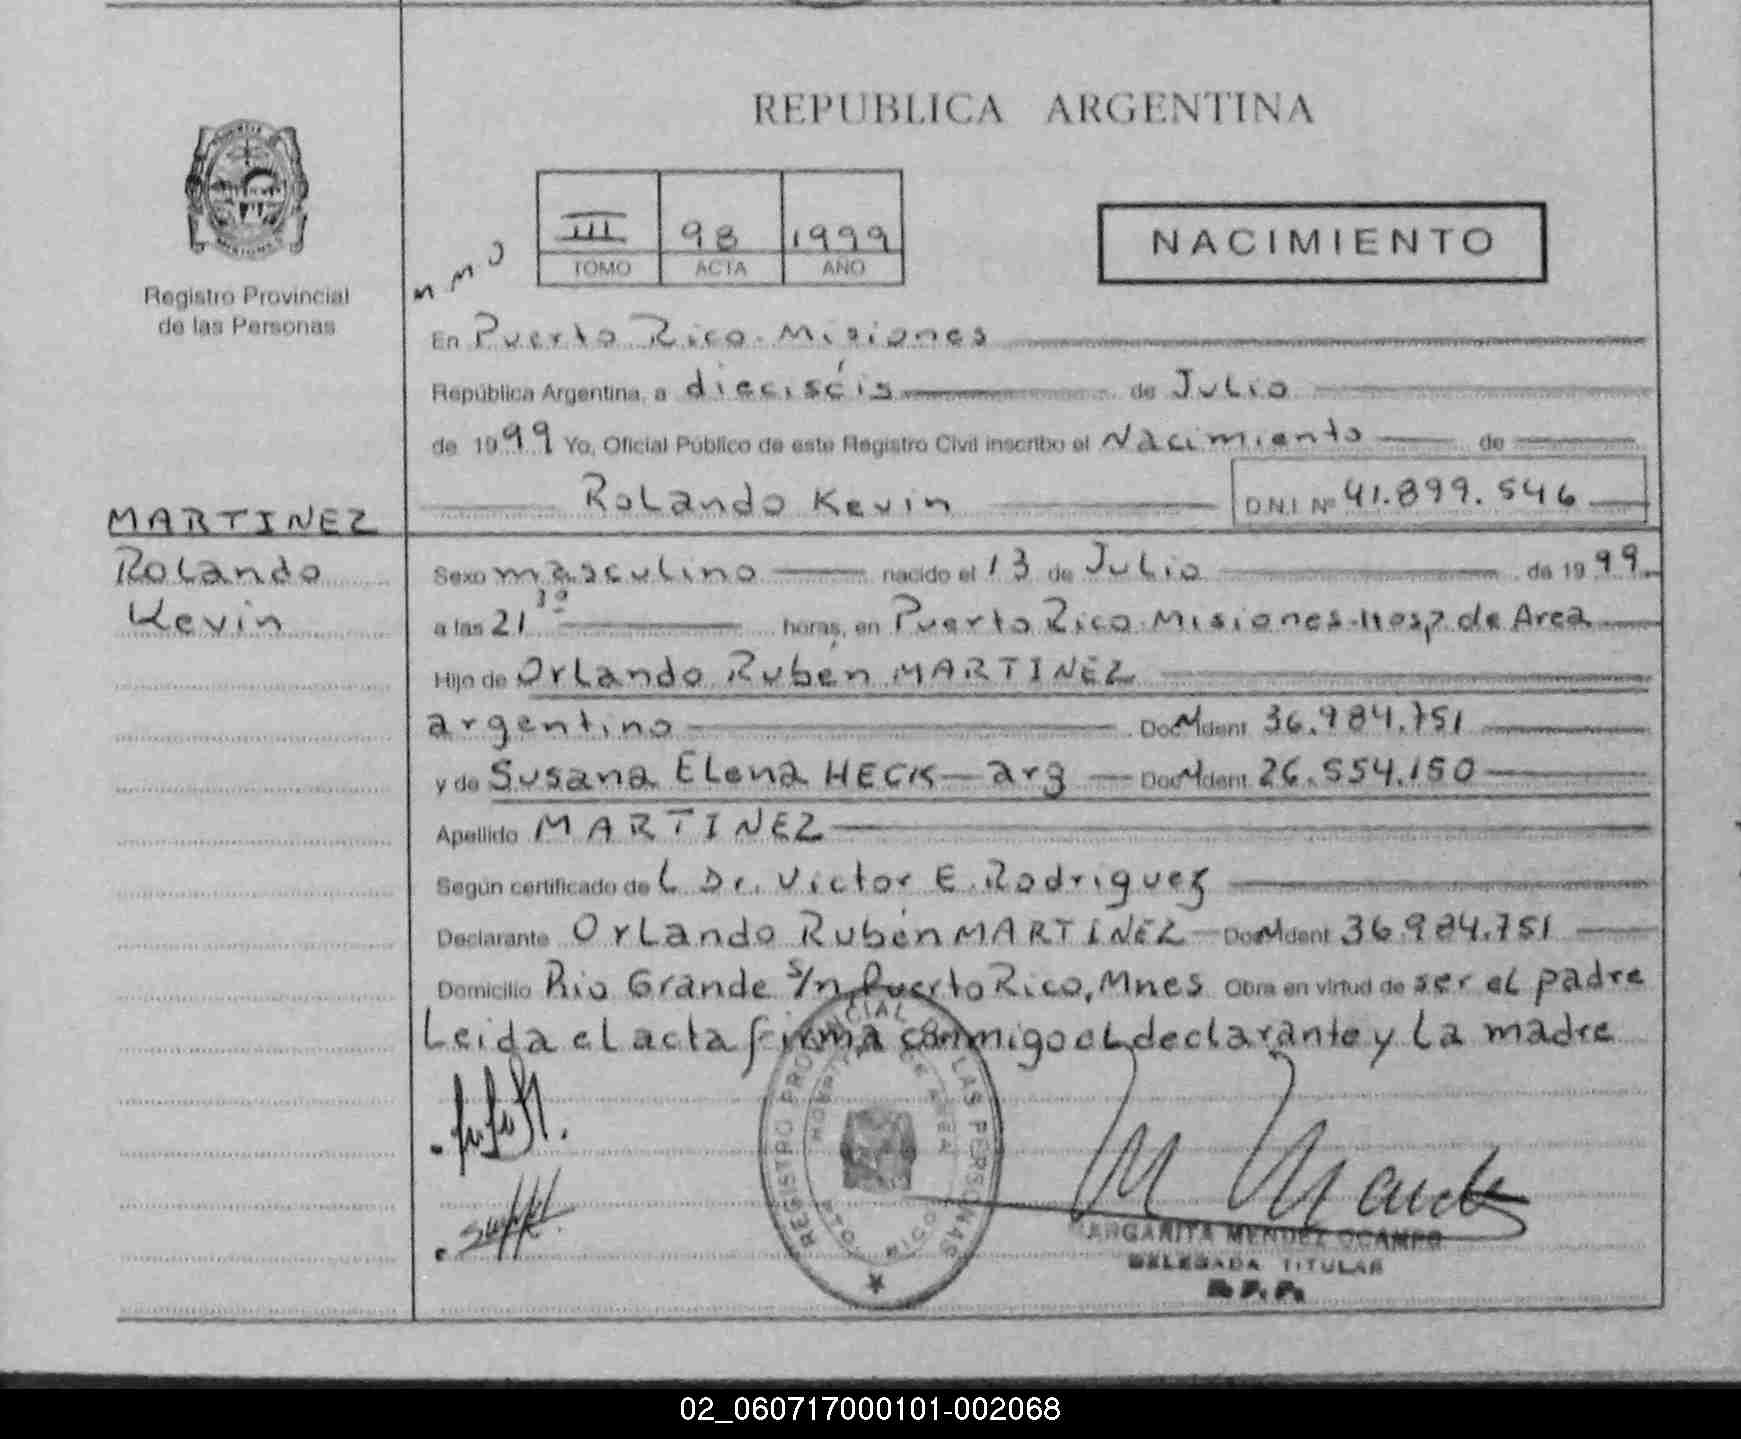 REPUBLICA ARGENTINA
III 98 1999
TOMO ACTA AÑO
NACIMIENTO
Registro Provincial
de las Personas
En Puerto Rico - Misiones
República Argentina, a dieciséis de Julio
de 1999 Yo, Oficial Público de este Registro Civil inscribo el Nacimiento de
Rolando Kevin D.N.I. Nº 41.899.546
MARTINEZ
Rolando
Kevin
Sexo masculino nacido el 13 de Julio de 1999
a las 21 30 horas, en Puerto Rico - Misiones - Hosp. de Area
Hijo de Orlando Rubén MARTINEZ
argentino Doc. Ident. 36.984.751
y de Susana Elena HECK - arg Doc. Ident. 26.554.150
Apellido MARTINEZ
Según certificado del Dr. Victor E. Rodriguez
Declarante Orlando Rubén MARTINEZ Doc. Ident. 36.984.751
Domicilio Rio Grande s/n, Puerto Rico, Mnes Obra en virtud de ser el padre
Leida el acta firma conmigo el declarante y la madre
REGISTRO PROVINCIAL DE LAS PERSONAS
MARGARITA MENDEZ OCAMPO
DELEGADA TITULAR
R.P.P.
02_060717000101-002068